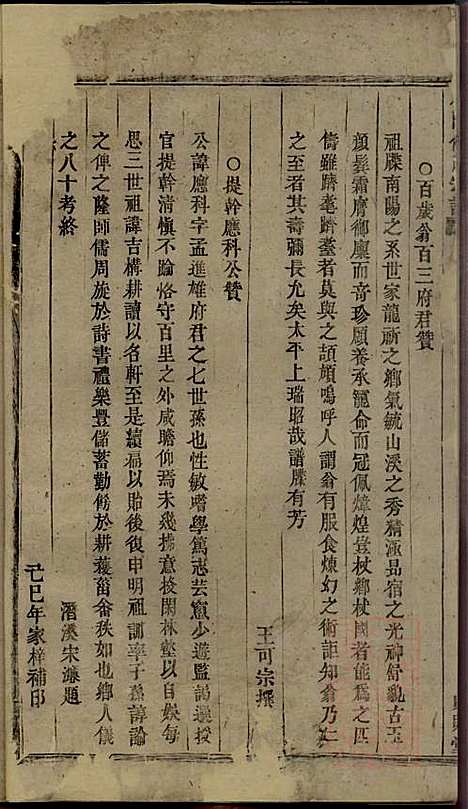 ○百歲翁百三府君贊
祖牒南陽之系世家龍祈之鄉氣毓山溪之秀精涵品宿之光神舒貌古玉
顏鬓霜膺御廩而奇珍頤養承寵命而冠佩煒煌登杖鄉杖國者能為之匹
儔雖躋耄躋耋者莫與之頡頏嗚呼人謂翁有服食煉幻之術詎知翁乃仁
之至者其壽彌長允矣太平上瑞昭哉譜牒有芳
王可宗撰
○提幹應科公贊
公諱應科字孟進雄府君之七世孫也性敏嗜學篤志芸窻少遊監謁選授
官提幹清愼不踰恪守百里之外咸瞻仰焉未幾拂意投閑林壑以自娛每
思三世祖諱吉構耕讀以名軒至是續扁以貽後復申明祖訓率子孫諄諭
之俾之隆師儒周旋於詩書禮樂豐儲蓄勤飭於耕穫菑畬秩如也鄉人儀
之八十考終
潛溪宋濂題
己巳年家梓補印